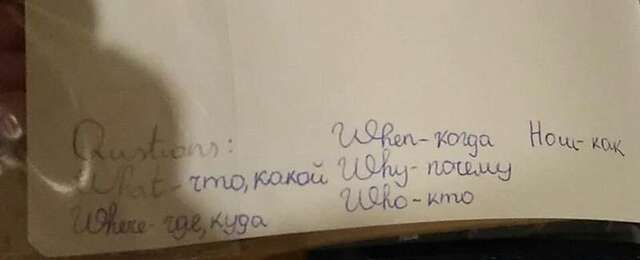 Questions: When - когда How - как
What - что, какой Why - почему
Where - где, куда Who - кто